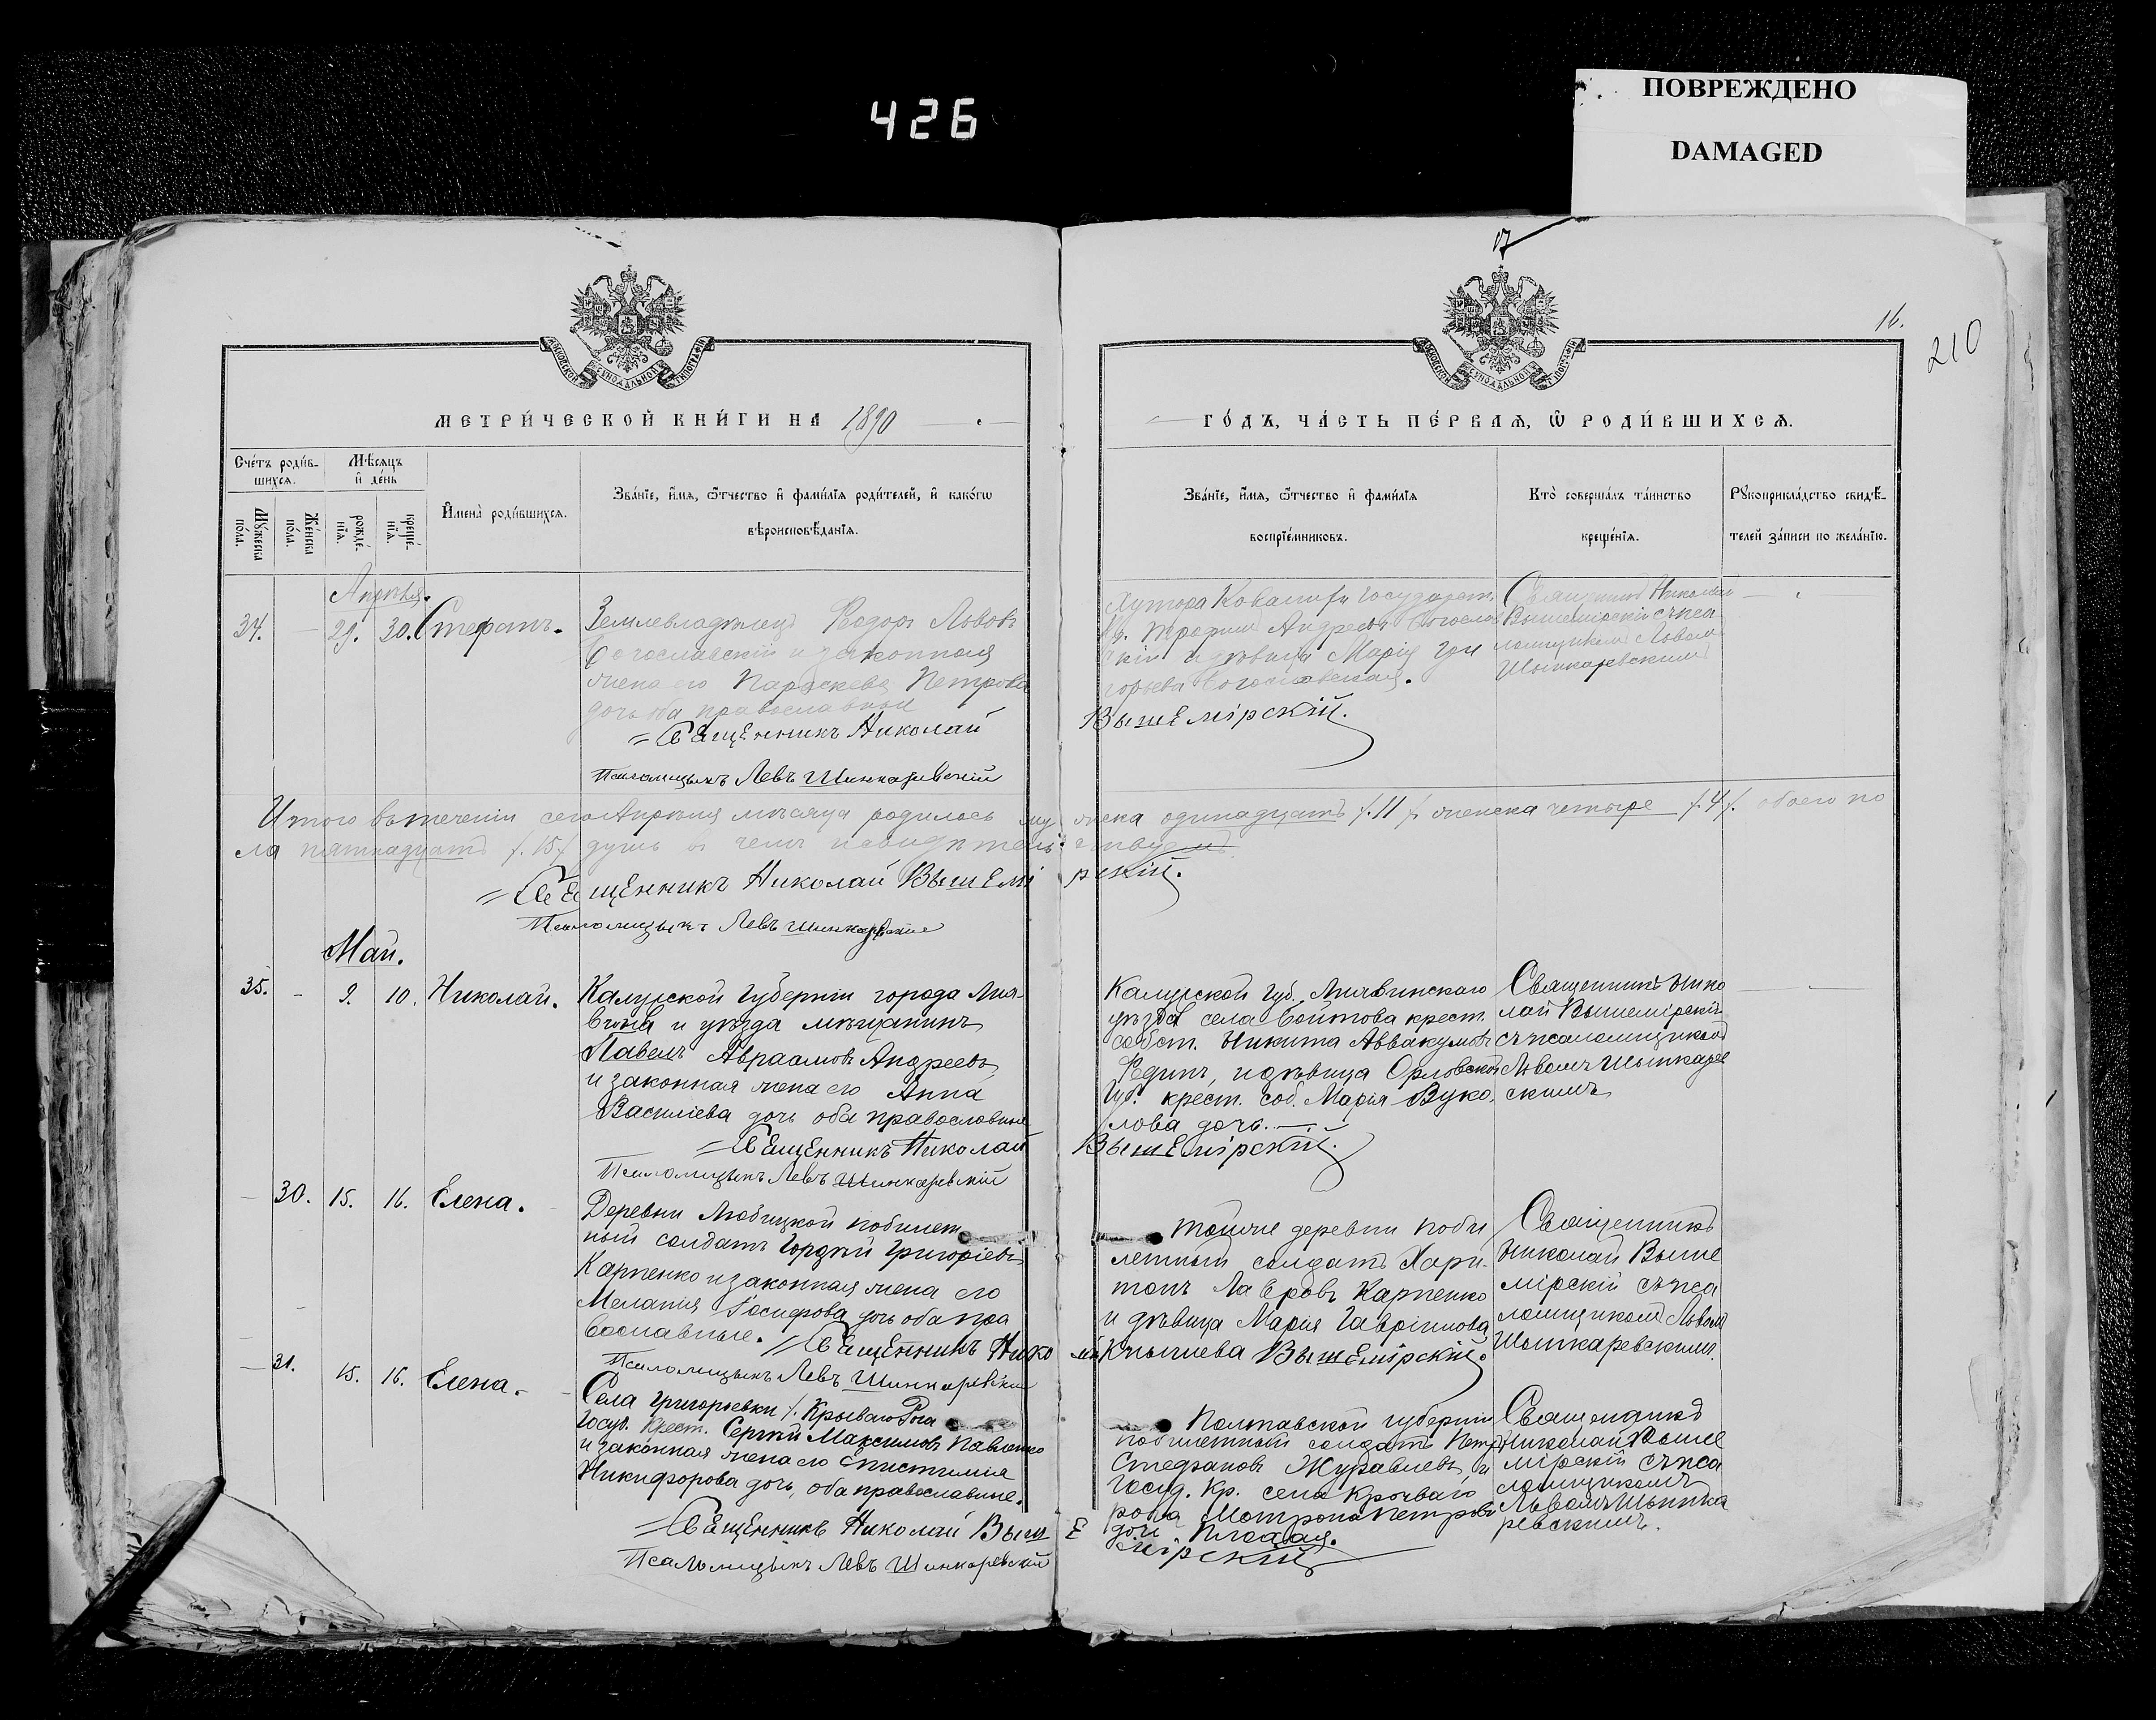 426
ПОВРЕЖДЕНО
DAMAGED
17
16.
210
МОСКОВСКОЙ СѴНОДАЛЬНОЙ ТИПОГРАФІИ
МОСКОВСКОЙ СѴНОДАЛЬНОЙ ТИПОГРАФІИ
МЕТРИ́ЧЕСКОЙ КНИ́ГИ НА 1890
ГО́ДЪ, ЧА́СТЬ ПЕ́РВАѦ, Ѡ҆ РОДИ́ВШИХСѦ.
Сче́тъ роди́в-
шихсѧ.
Мѣ́сѧцъ
и҆ де́нь
Мꙋ́жеска
по́ла.
Же́нска
по́ла.
рожде́-
нїѧ.
креще́-
нїѧ.
И҆мена̀ роди́вшихсѧ.
Зва́нїе, и҆́мѧ, ѻ҆́тчество и҆ фами́лїѧ роди́телей, и҆ како́гѡ
вѣроисповѣ́данїѧ.
Зва́нїе, и҆́мѧ, ѻ҆́тчество и҆ фами́лїѧ
воспрїе́мниковъ.
Кто̀ соверша́лъ та́инство
креще́нїѧ.
Рꙋкоприкла́дство свидѣ́-
телей за́писи по жела́нїю.
Апрѣля.
34. — 29. 30. Стефанъ.
Землевладѣлецъ Ѳедоръ Львовъ
Богославскій и законная
жена его Параскева Петрова
дочь оба православные
= Священникъ Николай
Псаломщикъ Левъ Шинкаревскій
Хутора государст.
кр. Трофимъ Андреевъ Богослав
скій и дѣвица Марія Гри
горьева Богославская.
Вышемірскій.
Священникъ Николай
Вышемірскій съ пса
ломщикомъ Львомъ
Шинкаревскимъ
Итого въ теченіи сего Апрѣля мѣсяца родилось му жеска одинадцать /.11./ женска четыре /.4./. обоего по
ла пятнадцать /.15./ душъ въ чемъ и свидѣтель ствуемъ
= Священникъ Николай Вышемі рскій.
Псаломщикъ Левъ Шинкаревскій
Май.
35. — 9. 10. Николай.
Калужской Губерніи города Лих
вина и уѣзда мѣщанинъ
Павелъ Авраамовъ Андреевъ
и законная жена его Анна
Василіева дочь оба православные
= Священникъ Николай
Псаломщикъ Левъ Шинкаревскій
Калужской Губ. Лихвинскаго
уѣзда села крест.
собст. Никита Аввакумовъ
Фединъ, и дѣвица Орловской
Губ. крест. соб. Марія Вуко
лова дочь.
Вышемірскій.
Священникъ Нико
лай Вышемірскій
съ псаломщикомъ
Львомъ Шинкарев
скимъ
— 30. 15. 16. Елена.
Деревни Любицкой побилет
ный солдатъ Гордѣй Григоріевъ
Карпенко и законная жена его
Меланія Іосифова дочь оба пра
вославные. = Священникъ Нико
Псаломщикъ Левъ Шинкаревскій
Тойже деревни поби
летный солдатъ Хари
тонъ Лавровъ Карпенко
и дѣвица Марія Гавріилова
лай Вышемірскій.
Священникъ
Николай Выше
мірскій съ пса
ломщикомъ Львомъ
Шинкаревскимъ.
— 31. 15. 16. Елена.
Села Григорьевки /. Крываго Рога
Госуд. Крест. Сергѣй Максимовъ Павленко
и законная жена его Епистимія
Никифорова дочь, оба православные.
= Священникъ Николай Выш
Псаломщикъ Левъ Шинкаревскій
Полтавской губерніи
побилетный солдатъ Петръ
Стефановъ Журавлевъ, и
Госуд. Кр. села Крываго
рога Матрона Петрова
дочь
е мірскій
Священникъ
Николай Выше
мірскій съ пса
ломщикомъ
Львомъ Шинка
ревскимъ.